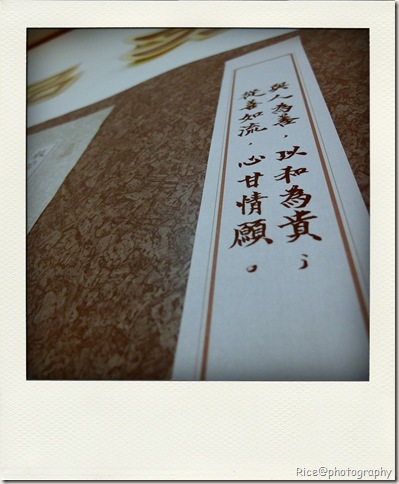 與人為善，以和為貴；
從善如流，心甘情願。
Rice@photography